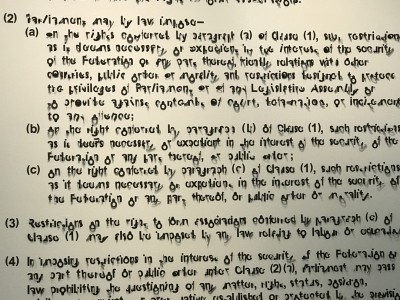 (2) Parliament may by law impose—
(a) on the rights conferred by paragraph (a) of Clause (1), such restrictions
as it deems necessary or expedient in the interest of the security
of the Federation or any part thereof, friendly relations with other
countries, public order or morality and restrictions designed to protect
the privileges of Parliament or of any Legislative Assembly or
to provide against contempt of court, defamation, or incitement
to any offence;
(b) on the right conferred by paragraph (b) of Clause (1), such restrictions
as it deems necessary or expedient in the interest of the security of the
Federation or any part thereof, or public order;
(c) on the right conferred by paragraph (c) of Clause (1), such restrictions
as it deems necessary or expedient in the interest of the security of
the Federation or any part thereof, or public order or morality.
(3) Restrictions on the right to form associations conferred by paragraph (c) of
Clause (1) may also be imposed by any law relating to labour or
(4) In imposing restrictions in the interest of the security of the Federation or
any part thereof or public order under Clause (2)(a), Parliament may pass
law prohibiting the questioning of any matter, right, status, position,
established or protected by the